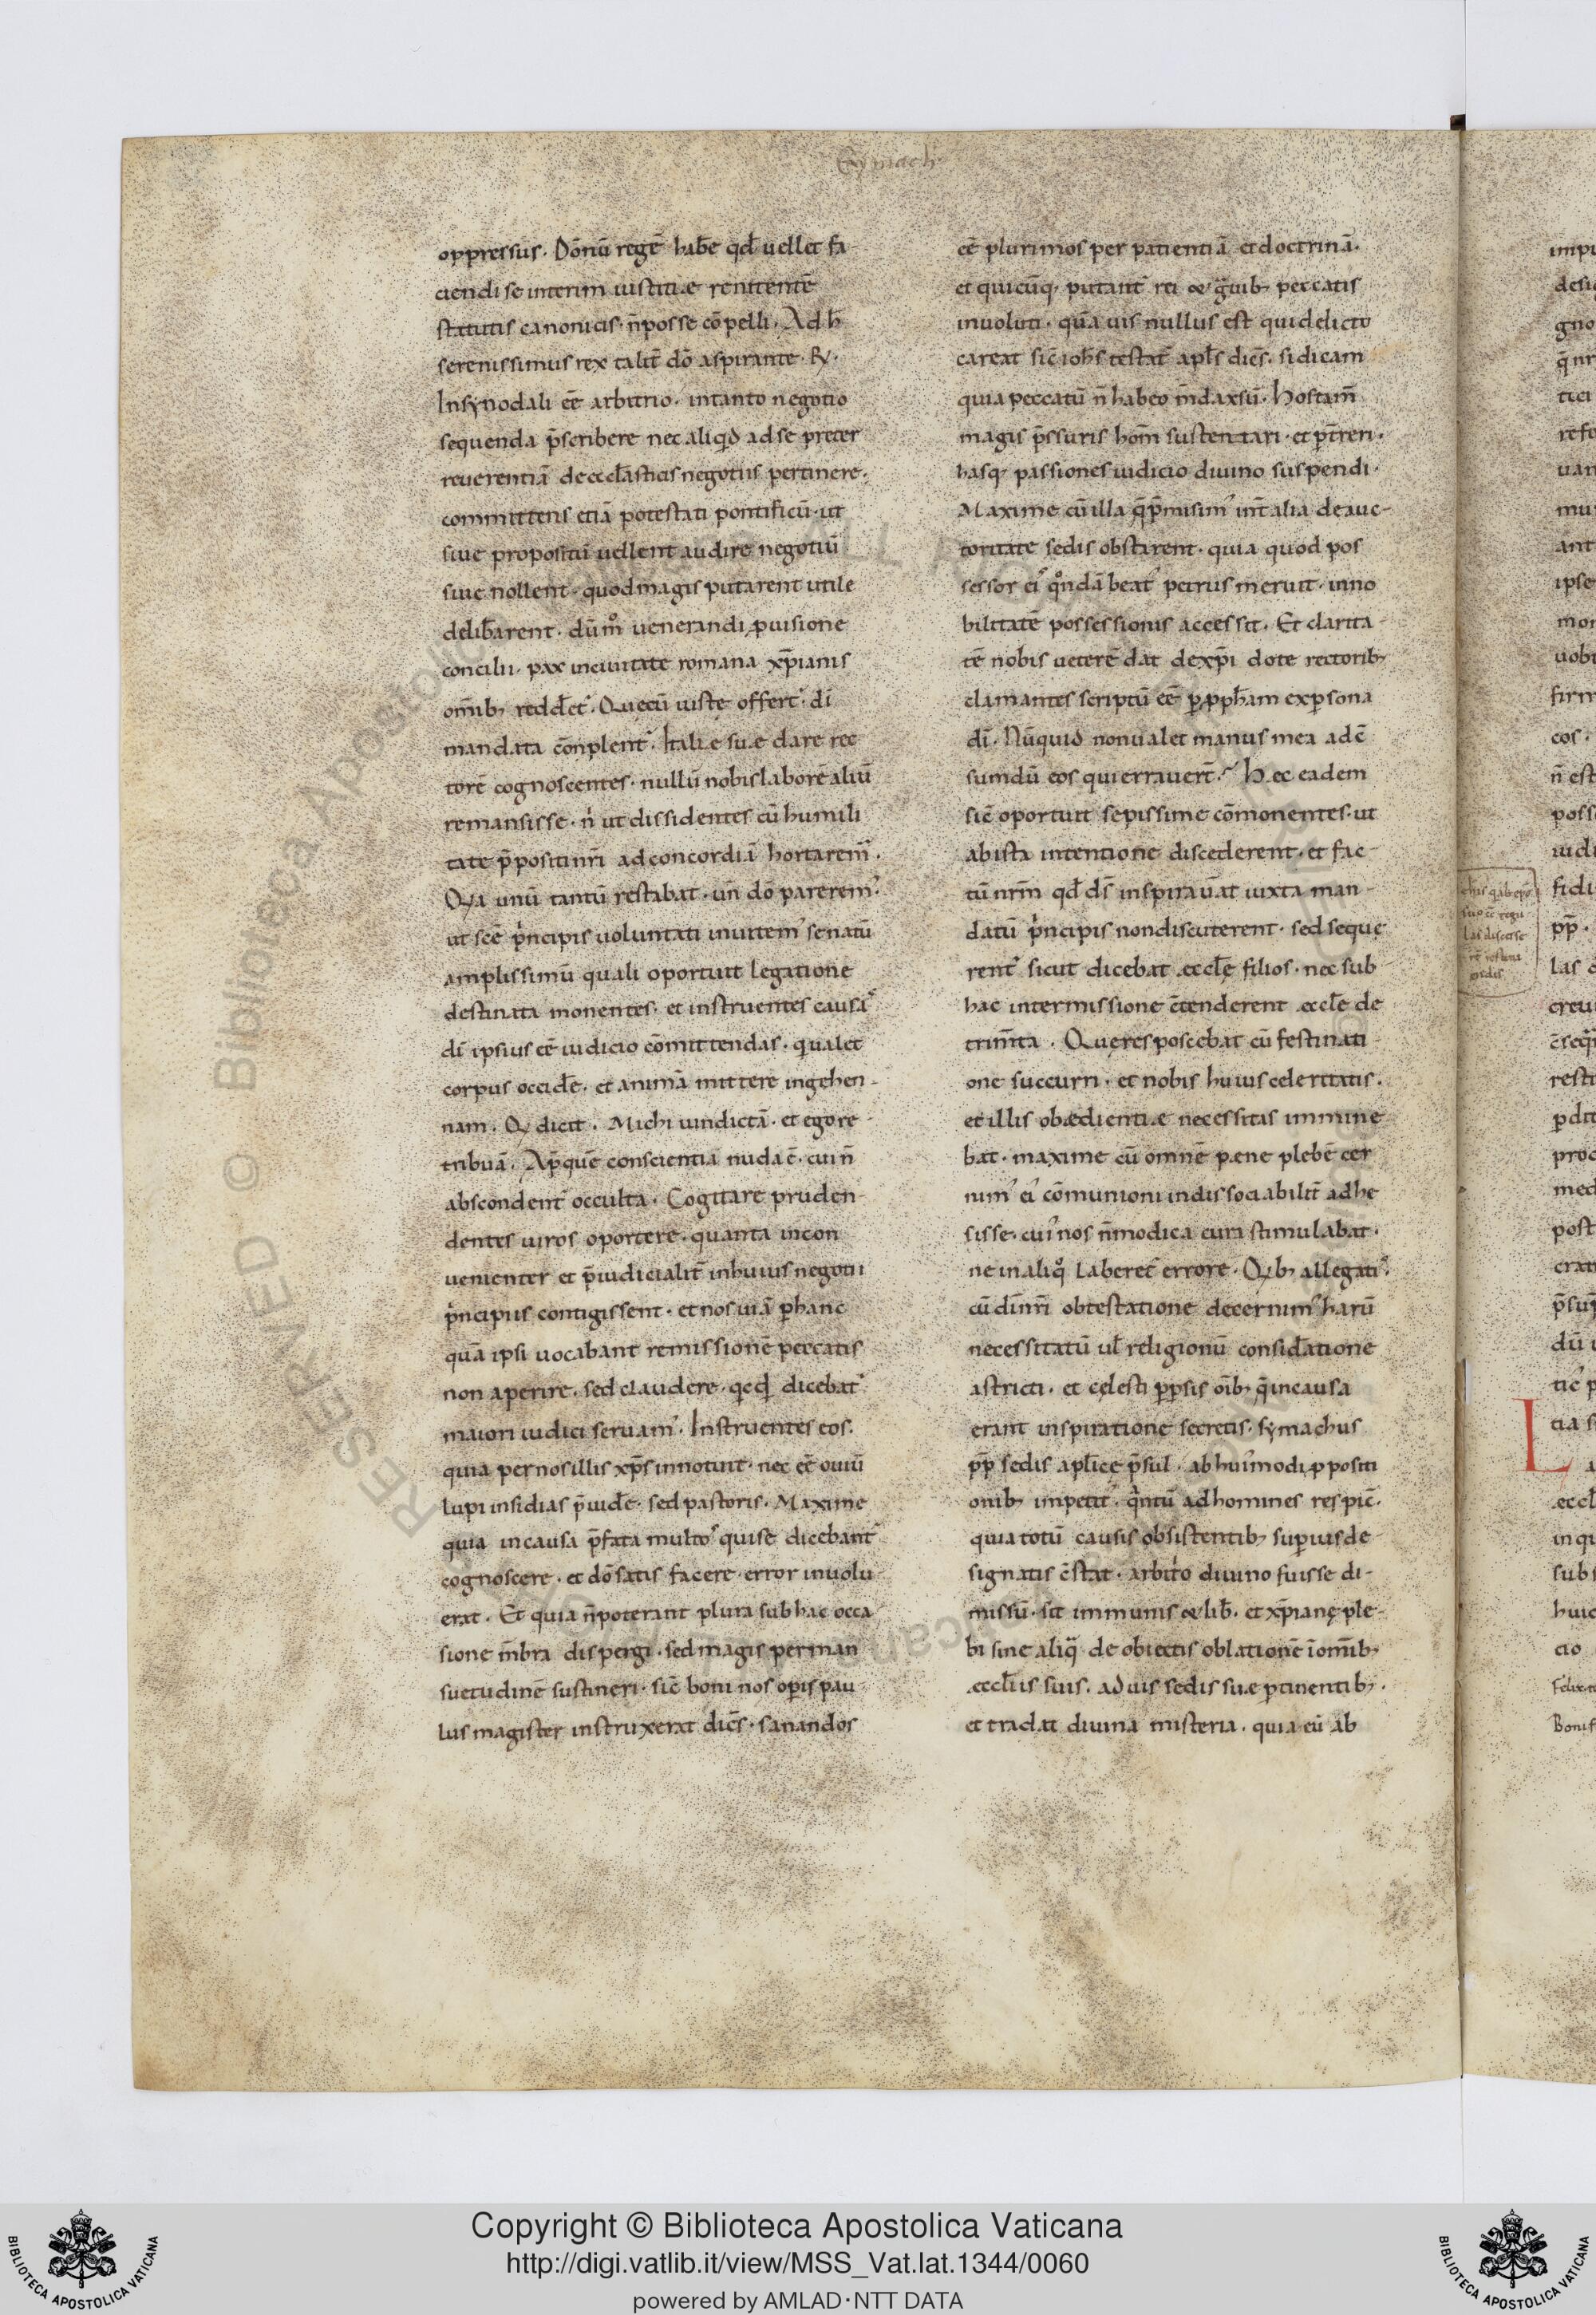 Symach
oppressus. Dōnū regē habē qđ uellet fa-
ciendi se interim iustitiæ renitentē
statutis canonicis. ñ posse cōpelli. Ad h̄
serenissimus rex talit̄ dō aspirante. R̷.
In synodali eē arbitrio. in tanto negotio
sequenda p̄scribere nec aliqid ad se preter
reuerentiā de eccl̄asticis negotiis pertinere.
committens etiā potestati pontificū. ut
siue propositū uellent audire negotiū
siue nollent. quod magis putarent utile
delib̄arent. dūm° uenerandi ꝓuisione
concilii. pax in ciuitate romana xp̄ianis
om̄ib; redd̄et᷑. Quecū iuste offert᷑. dī
mandata cōnplent᷑. Italiæ suæ dare rec
torē cognoscentes. nullū nobis laborē aliū
remansisse. n̍ ut dissidentes cū humili
tate p̄positi nr̄i ad concordiā hortarem᷑.
Q̷a unū tantū restabat. un̄ dō parerem᷑.
ut sc̄e p̍ncipis uoluntati inuitem᷒ senatū
amplissimū quali oportuit legatione
destinata monentes. et instruentes causā
dī ipsius eē iudicio cōmittendas. q ualet
corpus occid̄e. et animā mittere in gehen-
nam. Q̷ dicit. Michi uindictā. et ego re-
tribuā. Ap̄ quē conscientia nuda ē. cui ñ
abscondent᷑ occulta. Cogitare pruden-
dentes uiros oportere. quanta incon
uenienter et p̄iudicialit̄ in huius negotii
p̍ncipiis contigissent. et nos uiā ꝑ hanc
quā ipsi uocabant remissionē peccatis
non aperire. sed claudere. qcqd dicebat᷑
maiori iudici seruam᷒. Instruentes eos.
quia per nos illis xp̄s innotuit. nec eē ouiū
lupi insidias p̄uid̄e. sed pastoris. Maxime
quia in causa p̄fata multo᷒ qui se dicebant
cognoscere. et dō satis facere. error inuolu
erat. Et quia ñ poterant plura sub hac occa
sione m̄bra dispergi. sed magis per man
suetudinē sustineri. sic̄ boni nos opis pau-
lus magister instruxerat dic̄s. sanandos
eē plurimos per patientiā et doctrinā.
et quicūq; putant᷑ rei & g̃uib; peccatis
inuoluti. quāuis nullus est qui delicto
careat sic̄ ioh̄s testat᷑ apl̄s dic̄s. si dicam
quia peccatū ñ habeo m̄dax sū. Hos tam̄
magis p̄ssuris hom̄ sustentari. et p̄treri.
hasq; passiones iudicio diuino suspendi.
Maxime cū illa q̄ p̄misim᷒ int̄ alia de auc-
toritate sedis obstarent. quia quod pos
sessor ei᷒ q°ndā beat᷒ petrus meruit. in no
bilitatē possessionis accessit. Et clarita-
tē nobis ueterē dat de xp̄i dote rectorib;
clamantes scriptū eē ꝑ ꝓph̄am ex ꝑsona
dī. Nūquid non ualet manus mea ad ē
sumdū eos qui errauert̄. Hec eadem
sic̄ oportuit sepissime cōmonentes. ut
ab ista intentione discederent. et fac-
tū nrm̄ qđ ds̄ inspirau̅at iuxta man-
datū p̍ncipis non discuterent. sed seque
rent᷑ sicut dicebat æccl̄e filios. nec sub
hac intermissione c̄tenderent æccl̄e de
trim̄ta. Que res poscebat cū festinati-
one succurri. et nobis huius celeritatis.
et illis obædientiæ necessitas immine-
bat. maxime cū omnē pæne plebē cer
nim᷒ ei᷒ cōmunioni indissociabilit̄ adhe
sisse. cui᷒ nos ñ modica cura stimulabat.
ne in aliq° laberet᷑ errore. Q̷b; allegati᷒.
cū dī nr̄i obtestatione decernim᷒ harū
necessitatū ul̄ religionū considatione
astricti. et cęlesti ꝑpsis oīb; q̄ in causa
erant inspiratione secretis. symachus
pp̄ sedis apl̄ice p̄sul. ab hui᷒modi ꝓpositi
onib; impetit᷑. q̍ntū ad homines respic̄.
quia totū causis obsistentib; suꝑius de
signatis c̄stat. arbit̍o diuino fuisse di-
missū. sit immunis & lib̄. et xp̄ianę ple-
bi sine aliq̄ de obiectis oblationē ī om̄ib;
æccl̄iis suis. ad uis sedis suæ ꝑtinentib;.
et tradat diuina misteria. quia eū ab
Copyright © Biblioteca Apostolica Vaticana
http://digi.vatlib.it/view/MSS_Vat.lat.1344/0060
powered by AMLAD·NTT DATA
BIBLIOTECA APOSTOLICA VATICANA
BIBLIOTECA APOSTOLICA VATICANA